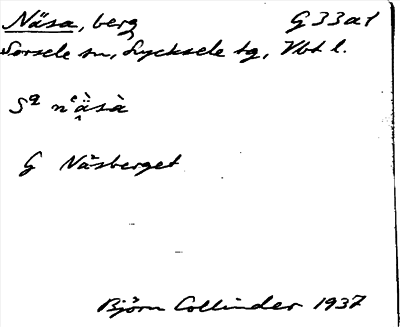 Näsa, berg G 33a1
Sorsele sn, Lycksele tg, Vbt l.
Sa
G Näsberget
Björn Collinder 1937